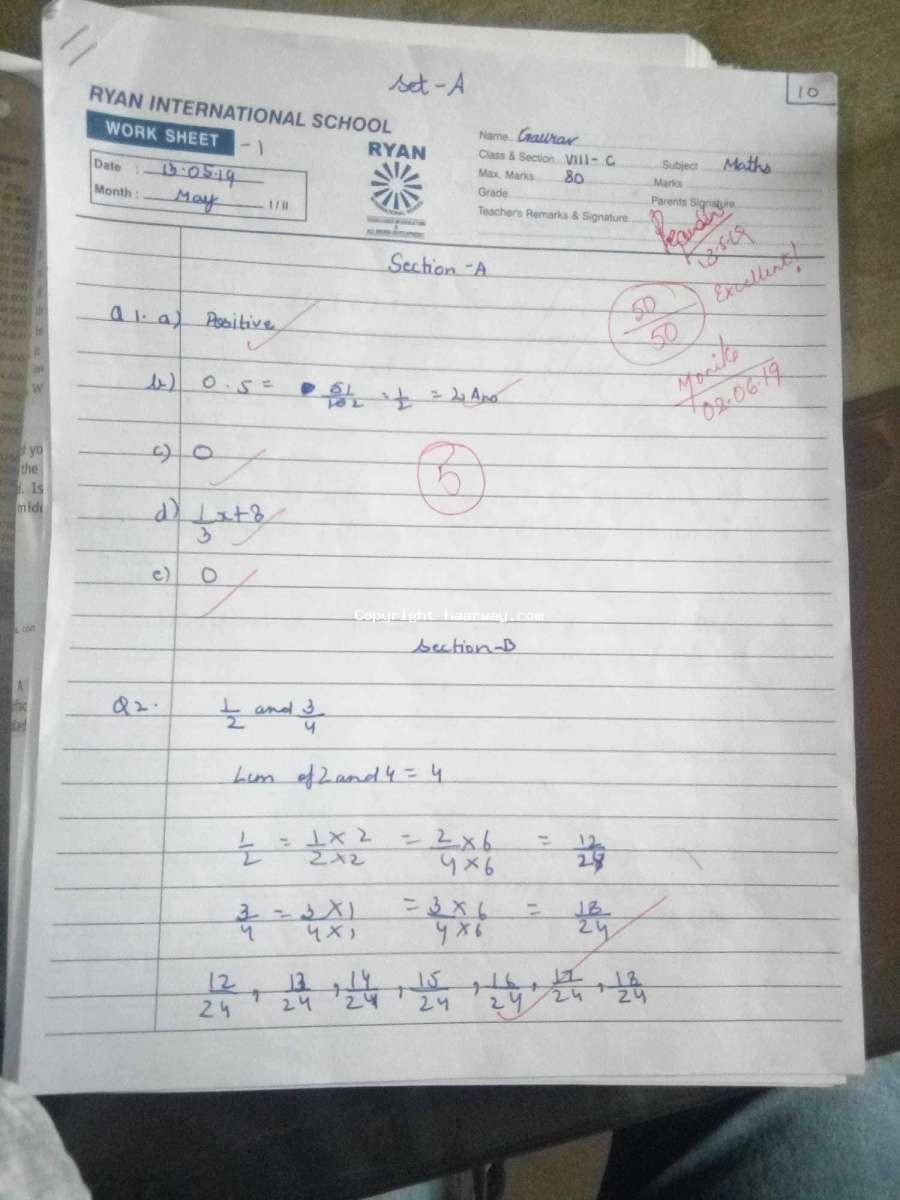 Set-A
10
RYAN INTERNATIONAL SCHOOL
WORK SHEET -1
Date : 13.05.19
Month : May I / II
RYAN
INTERNATIONAL SCHOOL
EXCELLENCE IN EDUCATION
& ALL ROUND DEVELOPMENT
Name Gaurav
Class & Section VIII-C Subject Maths
Max. Marks 80 Marks
Grade Parents Signature
Teacher's Remarks & Signature
13.5.19
Excellent!
50/50
Monika
02.06.19
Section-A
Q1. a) Positive
b) 0.5 = 51/102 = 1/2 = 2, Ans
c) 0
5
d) 1/3 x+8
e) 0
Copyright haarway.com
Section-B
Q2. 1/2 and 3/4
Lcm of 2 and 4 = 4
1/2 = 1×2/2×2 = 2×6/4×6 = 12/24
3/4 = 3×1/4×1 = 3×6/4×6 = 18/24
12/24, 13/24, 14/24, 15/24, 16/24, 17/24, 18/24